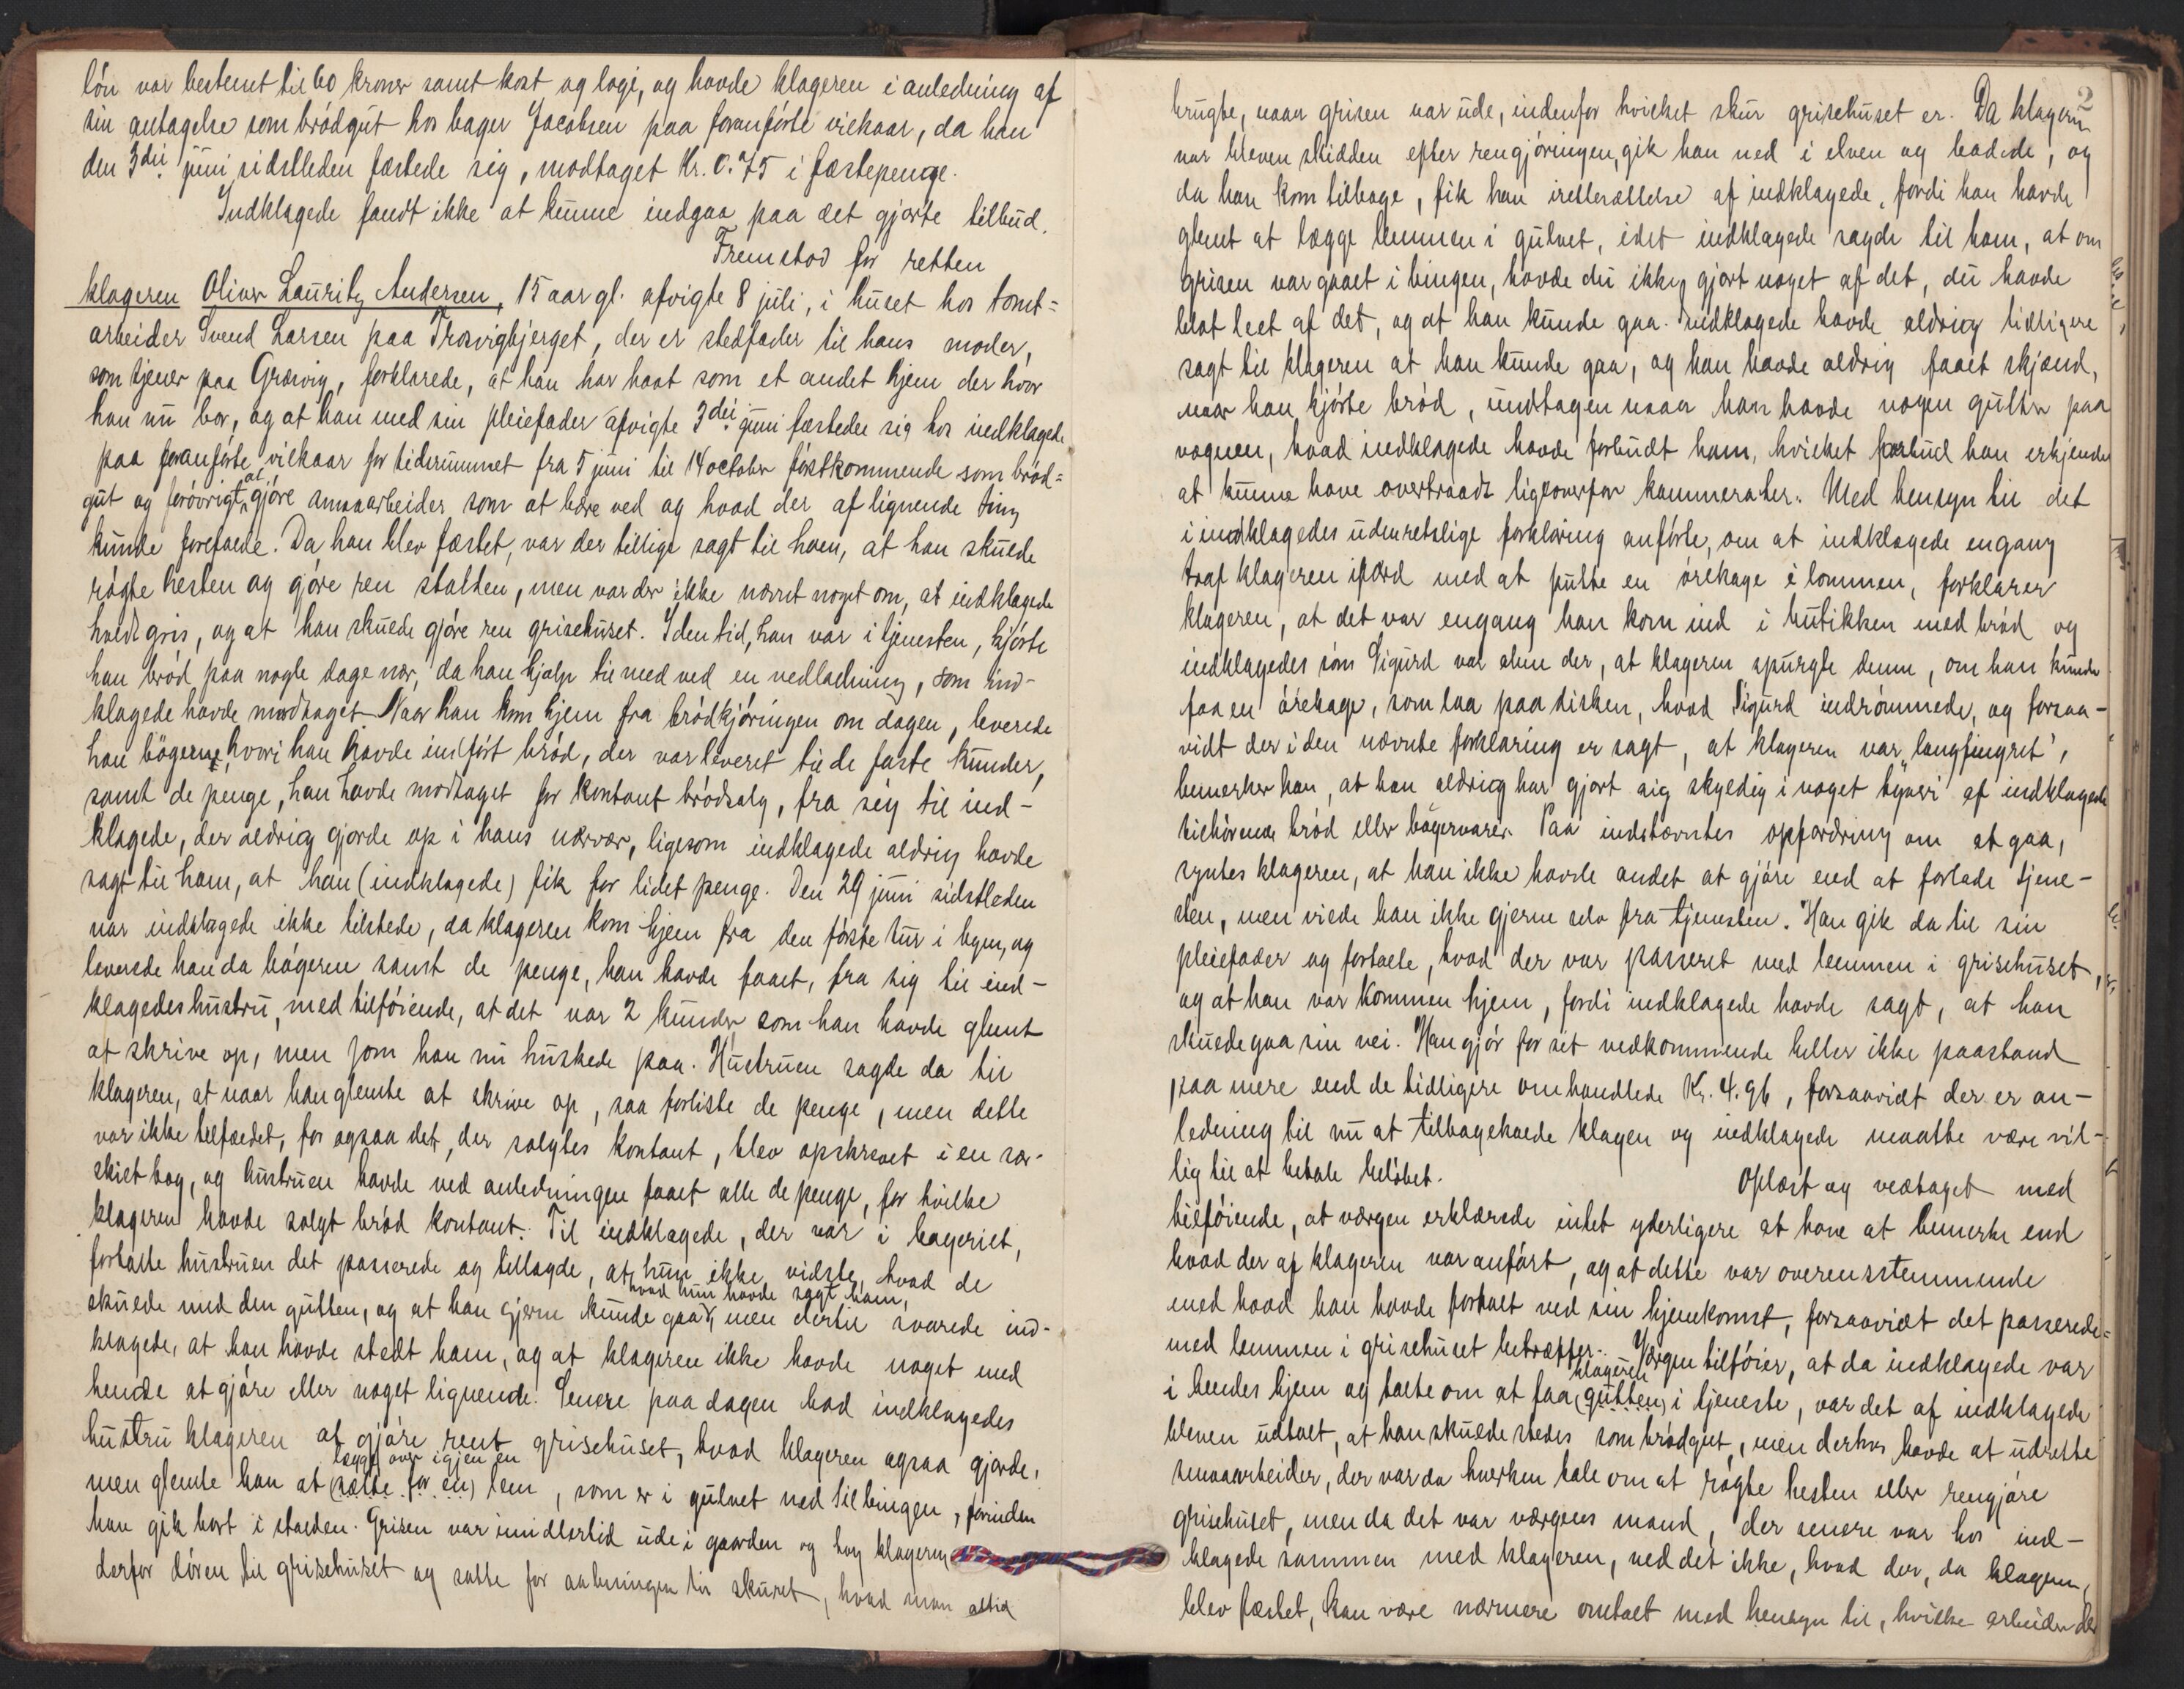 lön var bestemt til 60 kroner samt kost og logi, og havde klageren i anledning af
sin antagelse som brödgut hos bager Jacobsen paa foranförte vilkaar, da han
den 3die juni sidstleden fæstede sig, modtaget Kr. 0.75 i fæstepenge.
Indklagede fandt ikke at kunne indgaa paa det gjorte tilbud.
Fremstod for retten
klageren Oliver Lauritz Andersen, 15 aar gl. afvigte 8 juli, i huset hos tomt=
arbeider Svend Larsen paa Trosvigbjerget, der er stedfader til hans moder,
som tjener paa Græsvig, forklarede, at han har havt som et andet hjem der hvor
han nu bor, og at han med sin pleiefader afvigte 3die juni fæstedes sig hos indklagede
paa foranförte vilkaar for tidsrummet fra 5 juni til 14 october förstkommende som bröd=
gut og forövrigt at gjöre smaaarbeider som at bære ved og hvad der af lignende ting
kunde forefalde. Da han blev fæstet, var der tillige sagt til ham, at han skulde
rögte hesten og göre ren stalden, men var der ikke nævnt noget om, at indklagede
holdt gris, og at han skulde gjöre ren grisehuset. I den tid, han var i tjenesten, kjörte
han bröd paa nogle dage nær, da han hjalp til med ved en vedladning, som ind-
klagede havde modtaget. Naar han kom hjem fra brödkjöringen om dagen, leverede
han bögerne, hvori han havde indfört bröd, der var leveret til de faste kunder,
samt de penge, han havde modtaget for kontant brödsalg, fra sig til ind-
klagede, der aldrig gjorde op i hans nærvær, ligesom indklagede aldrig havde
sagt til ham, at han (indklagede) fik for lidet penge. Den 29 juni sidstleden
var indklagede ikke tilstede, da klageren kom hjem fra den förste tur i byen, og
leverede han da bögerne samt de penge, han havde faaet, fra sig til ind-
klagedes hustru, med tilföiende, at det var 2 kunder som han havde glemt
at skrive op, men som han nu huskede paa. Hustruen sagde da til
klageren, at naar han glemte at skrive op, saa forliste de penge, men dette
var ikke tilfældet, for ogsaa det, der solgtes kontant, blev opskrevet i en sær-
skilt bog, og hustruen havde ved anledningen faaet alle de penge, for hvilke
klageren havde solgt bröd kontant. Til indklagede, der var i bageriet,
fortalte hustruen det passerede og tillagde, at hun ikke vidste, hvad de
hvad hun havde sagt ham,
skulde med den gutten, og at han gjerne kunde gaa, men dertil svarede ind-
klagede, at han havde stedt ham, og at klageren ikke havde noget med
hende at gjöre eller noget lignende. Senere paa dagen bad indklagedes
hustru klageren at gjöre rent grisehuset, hvad klageren ogsaa gjorde,
lægge over igjen en
men glemte han at (sætte for en) lem, som er i gulvet ved til bingen, forinden
han gik bort i stalden. Grisen var imidlertid ude i gaarden og tog klageren
derfor dören til grisehuset og satte for aabningen til skuret, hvad man altid
2
brugte, naar grisen var ude, indenfor hvilket skur grisehuset er. Da klageren
var bleven skidden efter rengjöringen, gik han ned i elven og badede, og
da han kom tilbage, fik han irettesættelse af indklagede, fordi han havde
glemt at lægge lemmen i gulvet, idet indklagede sagde til ham, at om
grisen var gaaet i bingen, havde du ikke gjort noget af det, du havde
blot leet af det, og at han kunde gaa. Indklagede havde aldrig tidligere
sagt til klageren at han kunde gaa, og han havde aldrig faaet skjænd,
naar han kjörte bröd, undtagen naar han havde nogen gutter paa
vognen, hvad indklagede havde forbudt ham, hvilket forbud han erkjender
at kunne have overtraadt ligeoverfor kammerater. Med hensyn til det
i indklagedes udenretslige forklaring anförte, om at indklagede engang
traf klageren ifærd med at putte en örekage i lommen, forklarer
klageren, at det var engang han kom ind i butikken med bröd og
indklagedes sön Sigurd var alene der, at klageren spurgte denne, om han kunde
faa en örekage, som laa paa disken, hvad Sigurd indrömmede, og forsaa-
vidt der i den nævnte forklaring er sagt, at klageren var „langfingret",
bemerker han, at han aldrig har gjort sig skyldig i noget tyveri af indklagede
tilhörende bröd eller bagervarer. Paa indstævntes opfordring om at gaa,
syntes klageren, at han ikke havde andet at gjöre end at forlade tjene-
sten, men vilde han ikke gjerne selv fra tjenesten. Han gik da til sin
pleiefader og fortalte, hvad der var passeret med lemmen i grisehuset,
og at han var kommen hjem, fordi indklagede havde sagt, at han
skulde gaa sin vei. Han gjör for sit vedkommende heller ikke paastand
paa mere end de tidligere omhandlede Kr. 4.96, forsaavidt der er an-
ledning til nu at tilbagekalde klagen og indklagede maatte være vil-
lig til at betale belöbet.
Oplæst og vedtaget med
tilföiende, at værgen erklærede intet yderligere at have at bemerke end
hvad der af klageren var anfört, og at dette var overensstemmende
med hvad han havde fortalt ved sin hjemkomst, forsaavidt det passerede
med lemmen i grisehuset betræffer. Værgen tilföier, at da indklagede var
klageren
i hendes hjem og talte om at faa (gutten) i tjeneste, var det af indklagede
bleven udtalt, at han skulde stedes som brödgut, men derhos havde at udrette
smaaarbeider, der var da hverken tale om at rögte hesten eller rengjöre
grisehuset, men da det var værgens mand, der senere var hos ind-
klagede sammen med klageren, ved det ikke, hvad der, da klageren,
blev fæstet, kan være nærmere omtalt med hensyn til, hvilke arbeider der